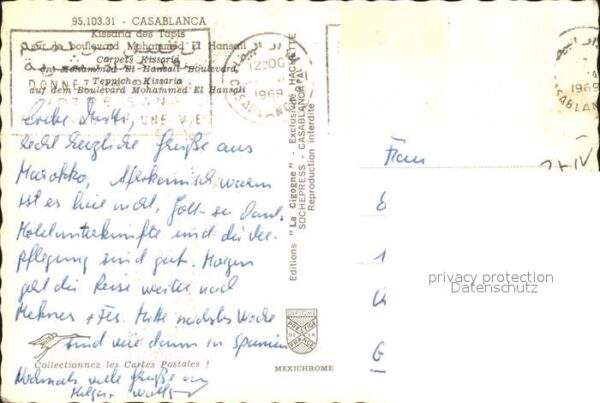 95.103.31 - CASABLANCA
Kissaria des Tapis
sur le boulevard Mohammed El Hansali
Carpets Kissaria
on Mohammed El Hansali Boulevard
Teppiche Kissaria
auf dem Boulevard Mohammed El Hansali
DONNEZ
UNE VIE
12H00
1969
CASABLANCA
1969
CASABLANCA
Liebe
recht herzliche Grüße aus
Marokko. Afrikanisch warm
ist es hier nicht, Gott sei Dank.
Hotelunterkünfte und die Ver-
pflegung sind gut. Morgen
geht die Reise weiter nach
Meknes + Fes. Mitte nächster Woche
sind wir dann in Spanien
Nochmals viele Grüße von
Holger
Collectionnez les Cartes Postales !
Editions "La Cigogne" - Exclusivité HACHETTE
SOCHEPRESS - CASABLANCA
Reproduction interdite
MEXICHROME
Frau
privacy protection
Datenschutz